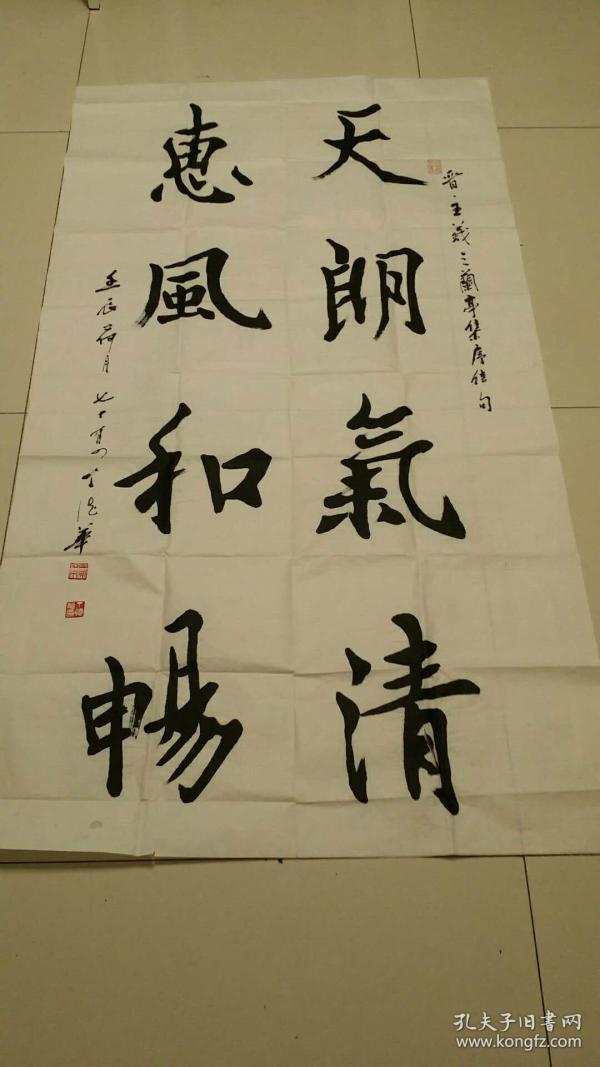 晋王羲之蘭亭集序佳句
天朗氣清
惠風和暢
壬辰荷月七十有四 德華
孔夫子旧書网
www.kongfz.com